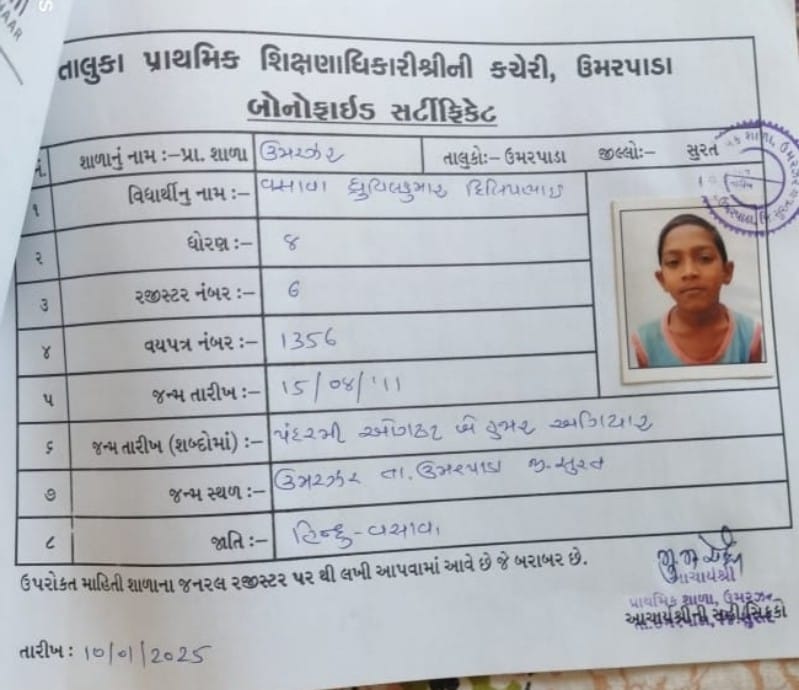 તાલુકા પ્રાથમિક શિક્ષણાધિકારીશ્રીની કચેરી, ઉમરપાડા
બોનોફાઇડ સર્ટીફિકેટ
નં. શાળાનું નામ :-પ્રા. શાળા ઉમરઝર તાલુકો:- ઉમરપાડા જીલ્લો:- સુરત
૧ વિદ્યાર્થીનુ નામ :- વસાવા ધ્રુવિલકુમાર દિલિપભાઇ
૨ ધોરણ :- ૪
૩ રજીસ્ટર નંબર :- 6
૪ વયપત્ર નંબર :- 1356
૫ જન્મ તારીખ :- 15/08/'11
૬ જન્મ તારીખ (શબ્દોમાં) :- પંદરમી ઓગષ્ટ બે હજાર અગિયાર
૭ જન્મ સ્થળ :- ઉમરઝર તા. ઉમરપાડા જી. સુરત
૮ જાતિ :- હિન્દુ - વસાવા
ઉપરોકત માહિતી શાળાના જનરલ રજીસ્ટર પર થી લખી આપવામાં આવે છે જે બરાબર છે.
આચાર્યશ્રી
પ્રાથમિક શાળા, ઉમરઝર
આચાર્યશ્રીની સહી/સિક્કો
તારીખ : 10/01/2025